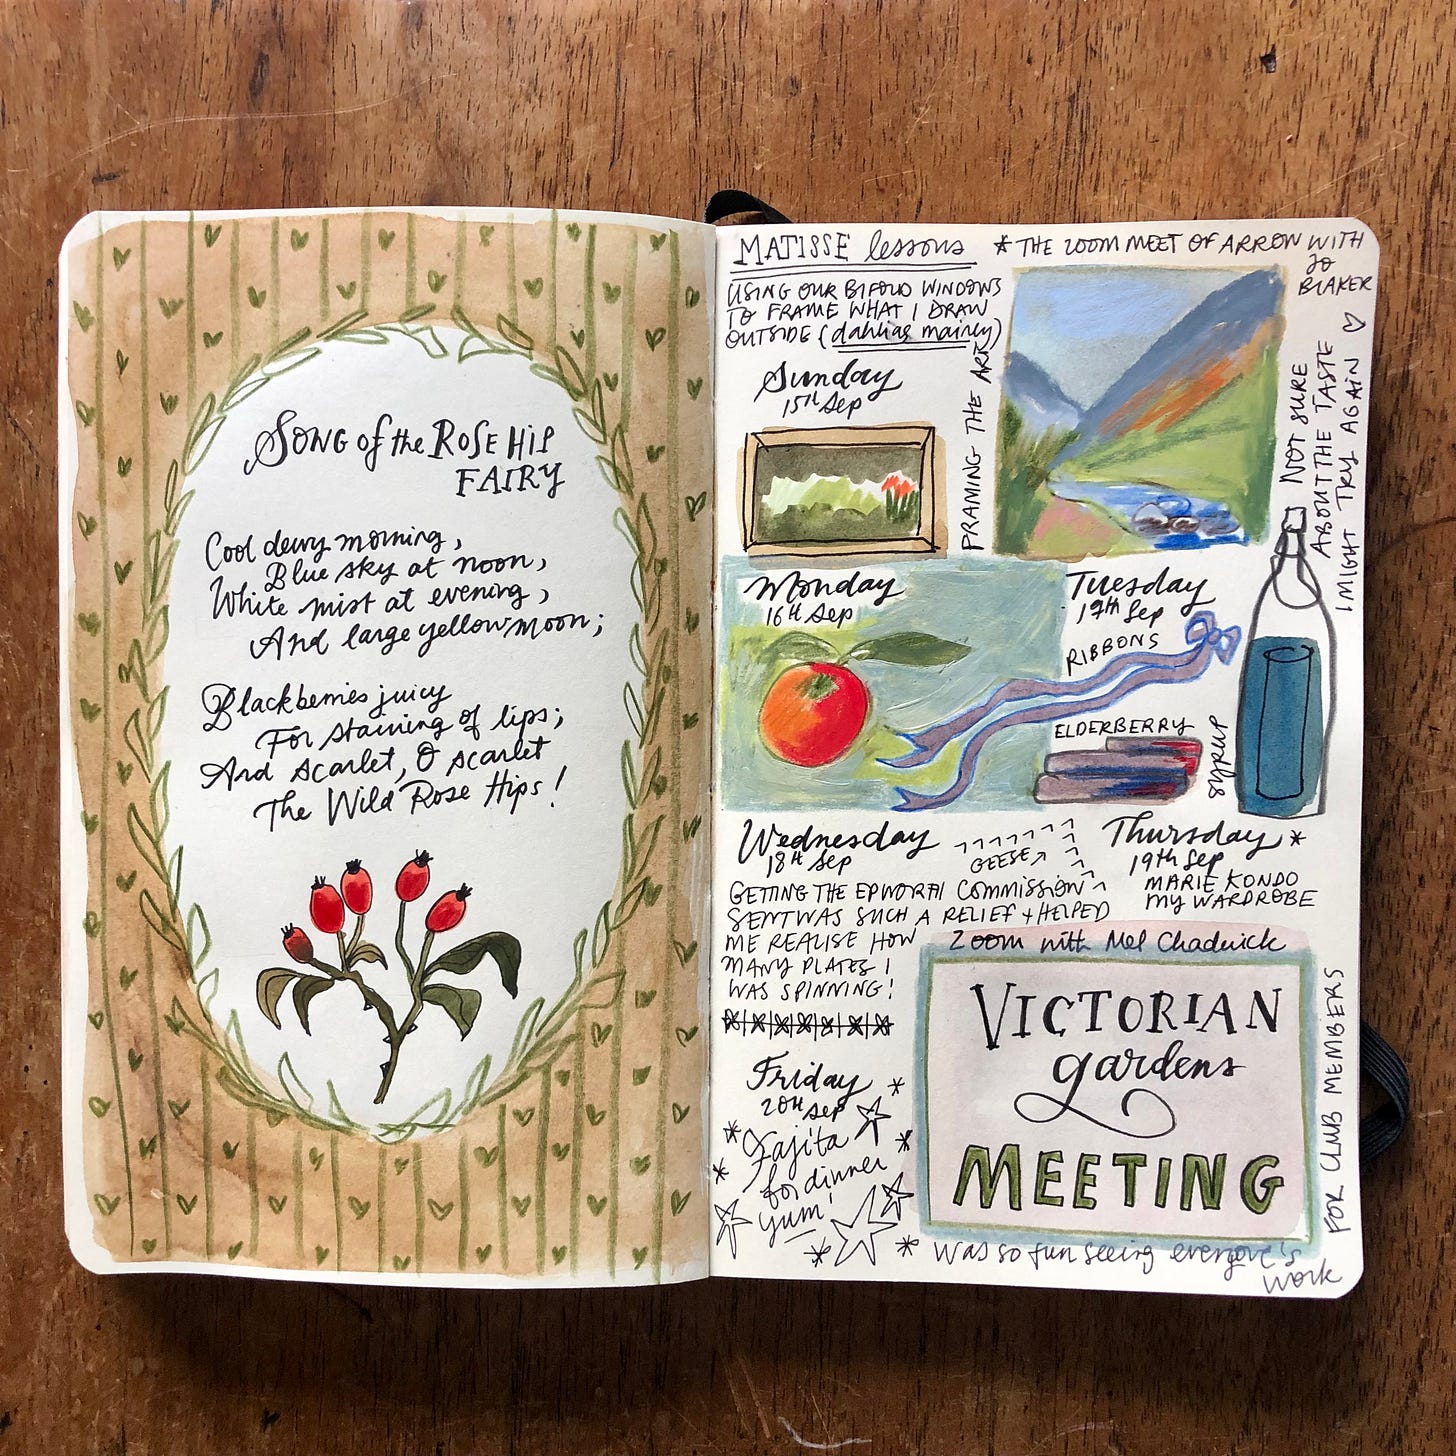 SONG of the ROSE HIP
FAIRY
Cool dewy morning,
Blue sky at noon,
White mist at evening,
And large yellow moon;
Blackberries juicy
For staining of lips;
And scarlet, O scarlet
The Wild Rose Hips!
MATISSE lessons
USING OUR BIFOLD WINDOWS
TO FRAME WHAT I DRAW
OUTSIDE (dahlias mainly)
* THE ZOOM MEET OF ARROW WITH
JO
BLAKER
Sunday
15th Sep
FRAMING THE ART
Monday
16th Sep
Tuesday
17th Sep
RIBBONS
ELDERBERRY
SYRUP
NOT SURE
ABOUT THE TASTE
I MIGHT TRY AGAIN
Wednesday
18th Sep
GEESE
GETTING THE EPWORTH COMMISSION
SENT WAS SUCH A RELIEF + HELPED
ME REALISE HOW
MANY PLATES I
WAS SPINNING!
Thursday *
19th Sep
MARIE KONDO
MY WARDROBE
Friday
20th Sep
Fajita
for dinner
yum!
Zoom with Mel Chadwick
VICTORIAN
gardens
MEETING
FOR CLUB MEMBERS
* was so fun seeing everyone's
work